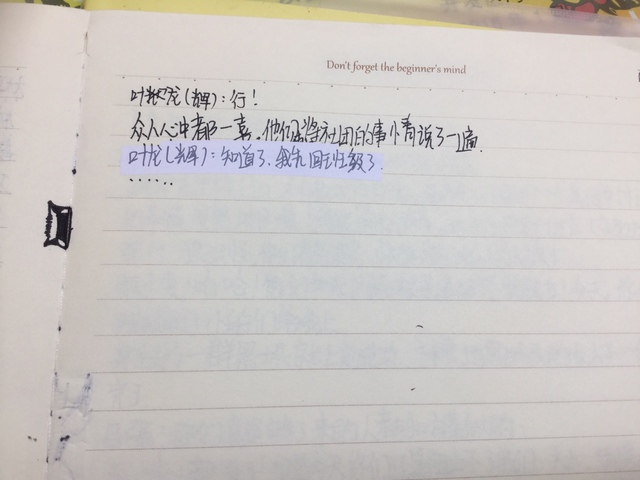 Don't forget the beginner's mind
叶龙(辉):行!
众人心中都一喜,他们将社团的事情说了一遍.
叶龙(辉):知道了,我先回班级了.
......